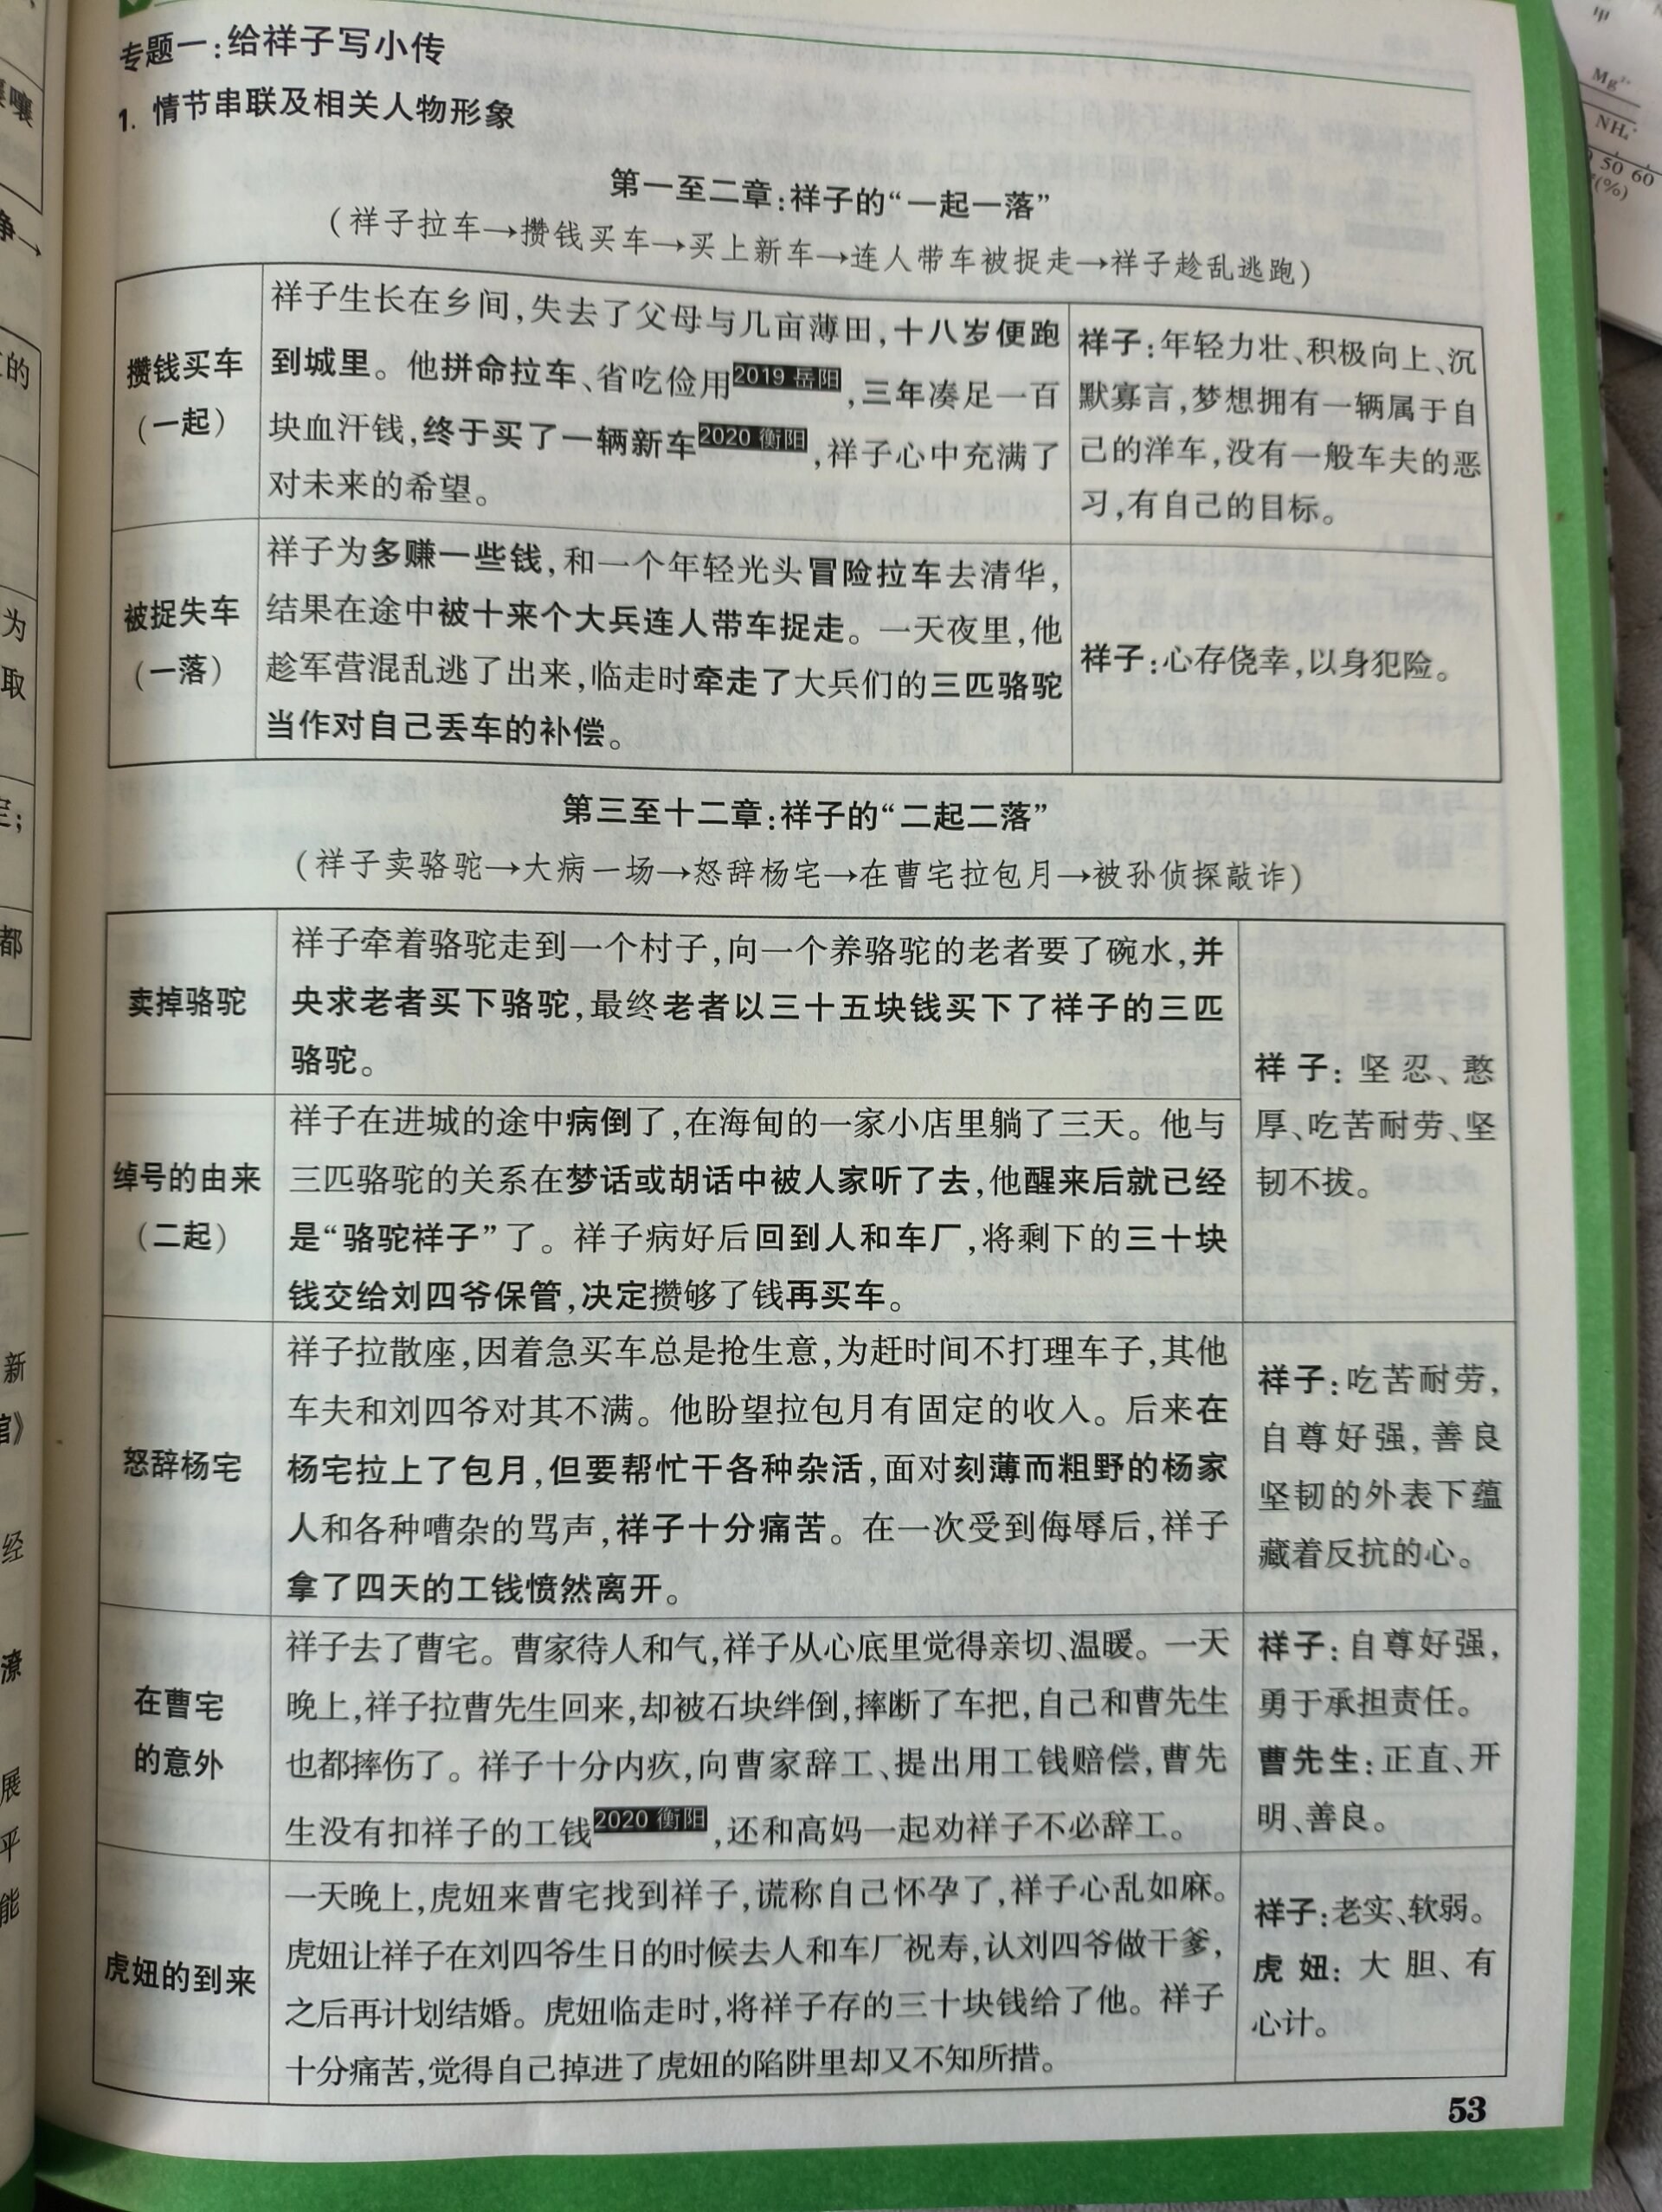 专题一:给祥子写小传
1. 情节串联及相关人物形象
第一至二章:祥子的“一起一落”
(祥子拉车→攒钱买车→买上新车→连人带车被捉走→祥子趁乱逃跑)
攒钱买车
(一起)
祥子生长在乡间,失去了父母与几亩薄田,十八岁便跑
到城里。他拼命拉车、省吃俭用2019 岳阳,三年凑足一百
块血汗钱,终于买了一辆新车2020 衡阳,祥子心中充满了
对未来的希望。
祥子:年轻力壮、积极向上、沉
默寡言,梦想拥有一辆属于自
己的洋车,没有一般车夫的恶
习,有自己的目标。
被捉失车
(一落)
祥子为多赚一些钱,和一个年轻光头冒险拉车去清华,
结果在途中被十来个大兵连人带车捉走。一天夜里,他
趁军营混乱逃了出来,临走时牵走了大兵们的三匹骆驼
当作对自己丢车的补偿。
祥子:心存侥幸,以身犯险。
第三至十二章:祥子的“二起二落”
(祥子卖骆驼→大病一场→怒辞杨宅→在曹宅拉包月→被孙侦探敲诈)
卖掉骆驼
祥子牵着骆驼走到一个村子,向一个养骆驼的老者要了碗水,并
央求老者买下骆驼,最终老者以三十五块钱买下了祥子的三匹
骆驼。
绰号的由来
(二起)
祥子在进城的途中病倒了,在海甸的一家小店里躺了三天。他与
三匹骆驼的关系在梦话或胡话中被人家听了去,他醒来后就已经
是“骆驼祥子”了。祥子病好后回到人和车厂,将剩下的三十块
钱交给刘四爷保管,决定攒够了钱再买车。
祥子:坚忍、憨
厚、吃苦耐劳、坚
韧不拔。
怒辞杨宅
祥子拉散座,因着急买车总是抢生意,为赶时间不打理车子,其他
车夫和刘四爷对其不满。他盼望拉包月有固定的收入。后来在
杨宅拉上了包月,但要帮忙干各种杂活,面对刻薄而粗野的杨家
人和各种嘈杂的骂声,祥子十分痛苦。在一次受到侮辱后,祥子
拿了四天的工钱愤然离开。
祥子:吃苦耐劳,
自尊好强,善良
坚韧的外表下蕴
藏着反抗的心。
在曹宅
的意外
祥子去了曹宅。曹家待人和气,祥子从心底里觉得亲切、温暖。一天
晚上,祥子拉曹先生回来,却被石块绊倒,摔断了车把,自己和曹先生
也都摔伤了。祥子十分内疚,向曹家辞工、提出用工钱赔偿,曹先
生没有扣祥子的工钱2020 衡阳,还和高妈一起劝祥子不必辞工。
祥子:自尊好强,
勇于承担责任。
曹先生:正直、开
明、善良。
虎妞的到来
一天晚上,虎妞来曹宅找到祥子,谎称自己怀孕了,祥子心乱如麻。
虎妞让祥子在刘四爷生日的时候去人和车厂祝寿,认刘四爷做干爹,
之后再计划结婚。虎妞临走时,将祥子存的三十块钱给了他。祥子
十分痛苦,觉得自己掉进了虎妞的陷阱里却又不知所措。
祥子:老实、软弱。
虎妞:大胆、有
心计。
53